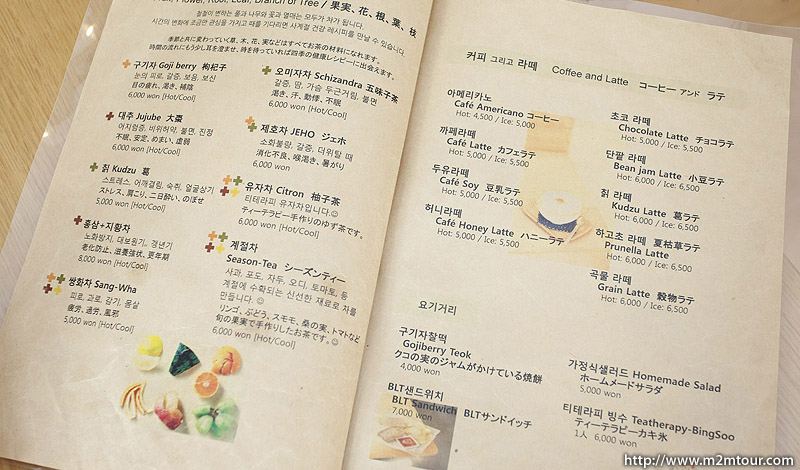 Fruit, Flower, Root, Leaf, Branch or Tree / 果実、花、根、葉、枝
철철이 변하는 풀과 나무와 꽃과 열매는 모두가 차가 됩니다.
시간의 변화에 조금만 관심을 가지고 때를 기다리면 사계절 건강 레시피를 만날 수 있습니다.
季節と共に変わっていく草、木、花、実などはすべてお茶の材料になれます。
時間の流れにもう少し耳を澄ませ、時を待っていれば四季の健康レシピーに出会えます。
구기자 Goji berry 枸杞子
눈의 피로, 갈증, 보음, 보신
目の疲れ、渇き、補陰
6,000 won [Hot/Cool]
대추 Jujube 大棗
어지럼증, 비위허약, 불면, 진정
不眠、安定、めまい、虚弱
6,000 won [Hot/Cool]
칡 Kudzu 葛
스트레스, 어깨결림, 숙취, 얼굴상기
ストレス、肩こり、二日酔い、のぼせ
5,000 won [Hot/Cool]
홍삼+지황차
노화방지, 대보원기, 갱년기
老化防止、滋養強壮、更年期
8,000 won [Hot/Cool]
쌍화차 Sang-Wha
피로, 과로, 감기, 몸살
疲労、過労、風邪
5,000 won [Hot/Cool]
오미자차 Schizandra 五味子茶
갈증, 땀, 가슴 두근거림, 불면
渇き、汗、動悸、不眠
6,000 won [Hot/Cool]
제호차 JEHO ジェホ
소화불량, 갈증, 더위탈 때
消化不良、喉渇き、暑がり
6,000 won [Hot/Cool]
유자차 Citron 柚子茶
티테라피 유자차입니다.☺
ティーテラピー手作りのゆず茶です。
6,000 won [Hot/Cool]
계절차
Season-Tea シーズンティー
사과, 포도, 자두, 오디, 토마토, 등
계절에 수확되는 신선한 재료로 차를
만듭니다. ☺
リンゴ、ぶどう、スモモ、桑の実、トマトなど
旬の果実で手作りしたお茶です。☺
6,000 won [Hot/Cool]
커피 그리고 라떼 Coffee and Latte コーヒー アンド ラテ
아메리카노
Café Americano コーヒー
Hot: 4,500 / Ice: 5,000
까페라떼
Café Latte カフェラテ
Hot: 5,000 / Ice: 5,500
두유라떼
Café Soy 豆乳ラテ
Hot: 5,000 / Ice: 5,500
허니라떼
Café Honey Latte ハニーラテ
Hot: 5,000 / Ice: 5,500
초코 라떼
Chocolate Latte チョコラテ
Hot: 5,000 / Ice: 5,500
단팥 라떼
Bean jam Latte 小豆ラテ
Hot: 6,000 / Ice: 6,500
칡 라떼
Kudzu Latte 葛ラテ
Hot: 6,000 / Ice: 6,500
하고초 라떼 夏枯草ラテ
Prunella Latte
Hot: 6,000 / Ice: 6,500
곡물 라떼
Grain Latte 穀物ラテ
Hot: 6,000 / Ice: 6,500
요기거리
구기자찰떡
Gojiberry Teok
クコの実のジャムがかけている焼餅
4,000 won
BLT샌드위치
BLT Sandwich BLTサンドイッチ
7,000 won
가정식샐러드 Homemade Salad
ホームメードサラダ
5,000 won
티테라피 빙수 Teatherapy-BingSoo
ティーテラピーカキ氷
1人 6,000 won
http://www.m2mtour.com